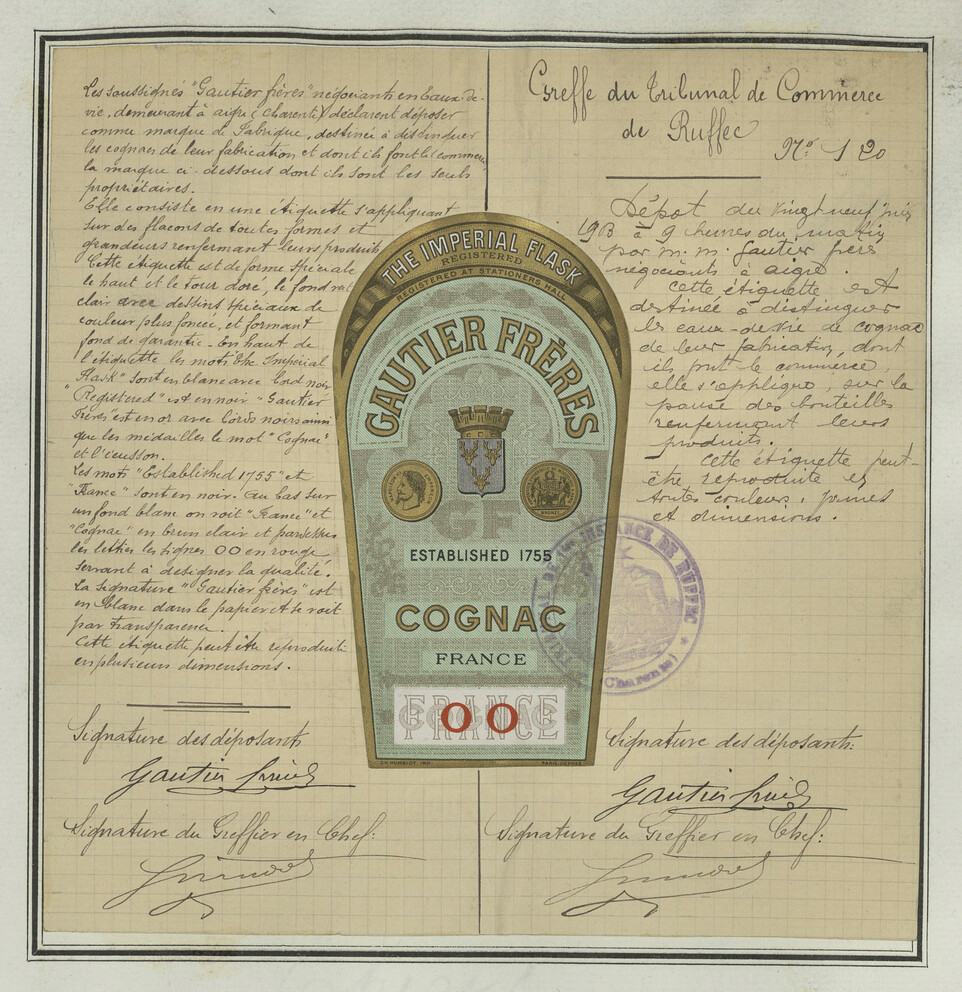 Les soussignés "Gautier frères" négociants en Eaux-de-
vie, demeurant à aigre (Charente) déclarent déposer
comme marque de Fabrique, destinée à distinguer
les cognacs de leur fabrication et dont ils font le commerce
la marque ci-dessous dont ils sont les seuls
propriétaires.
Elle consiste en une étiquette s'appliquant
sur des flacons de toutes formes et
grandeurs renfermant leurs produits
Cette étiquette est de forme spéciale
le haut et le tour doré, le fond vert
clair avec dessins spéciaux de
couleur plus foncée, et formant
fond de garantie. En haut de
l'étiquette les mots "The Imperial
Flask" sont en blanc avec bord noir
"Registered" est en noir "Gautier
Frères" est en or avec bords noirs ainsi
que les médailles le mot "Cognac"
et l'écusson.
Les mots "Established 1755" et
"France" sont en noir. Au bas sur
un fond blanc on voit "France" et
"Cognac" en brun clair et par dessus
les lettres les signes OO en rouge
servant à désigner la qualité.
La signature "Gautier frères" est
en blanc dans le papier et se voit
par transparence.
Cette étiquette peut être reproduite
en plusieurs dimensions.
Signature des déposants
Gautier frères
Signature du Greffier en Chef:
THE IMPERIAL FLASK
REGISTERED
REGISTERED AT STATIONERS HALL
GAUTIER FRÈRES
GF
ESTABLISHED 1755
COGNAC
FRANCE
FRANCE
COGNAC
OO
CH. HUMBLOT, IMP.
PARIS
Greffe du Tribunal de Commerce
de Ruffec
No. 120
Dépôt du vingt neuf
1903 à 9 heures du matin
par m.m. Gautier frères
négociants à aigre.
Cette étiquette est
destinée à distinguer
les eaux-de-vie de cognac
de leur fabrication, dont
ils font le commerce,
elle s'applique, sur la
panse des bouteilles
renfermant leurs
produits.
Cette étiquette peut-
être reproduite en
toutes couleurs, formes
et dimensions.
INSTANCE DE RUFFEC
(Charente)
Signature des déposants:
Gautier frères
Signature du Greffier en Chef: